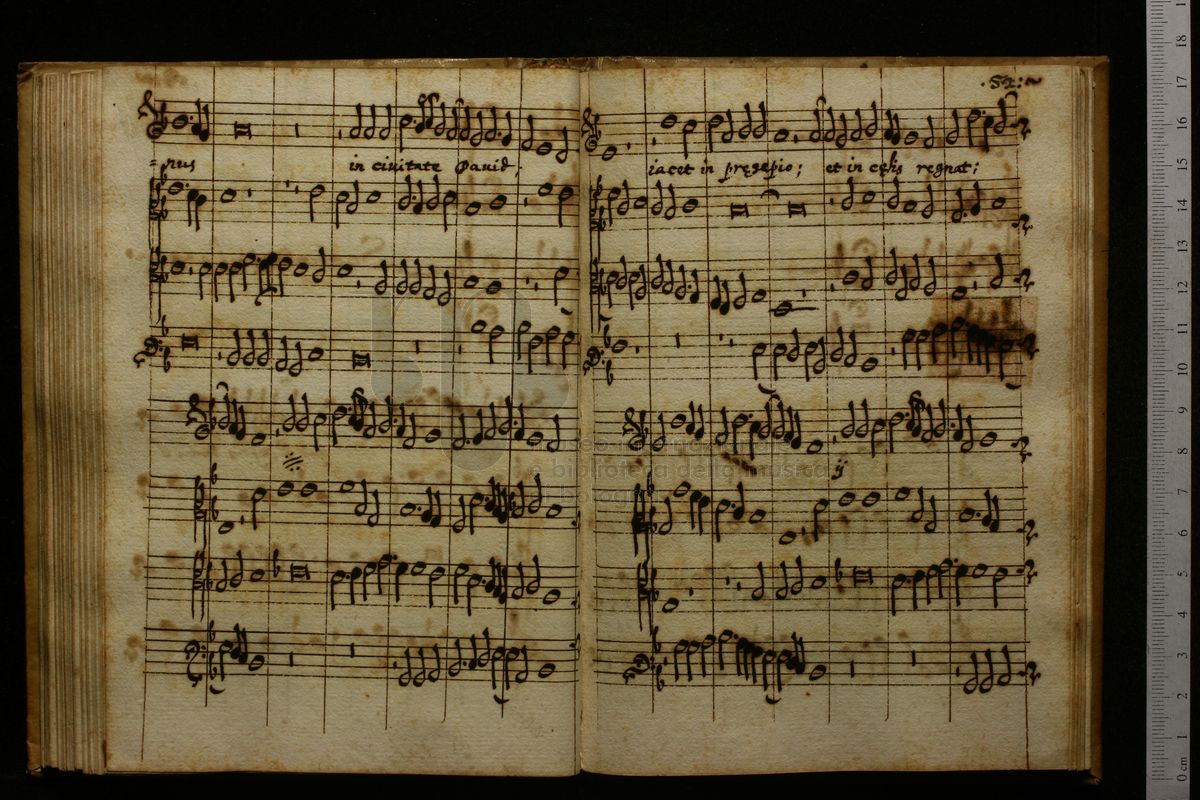 =nus in ciuitate Dauid,
.52:~
iacet in pręsepio; et in cęlis regnat;
ij
museo internazionale
e biblioteca della musica
bologna
0 cm 1 2 3 4 5 6 7 8 9 10 11 12 13 14 15 16 17 18